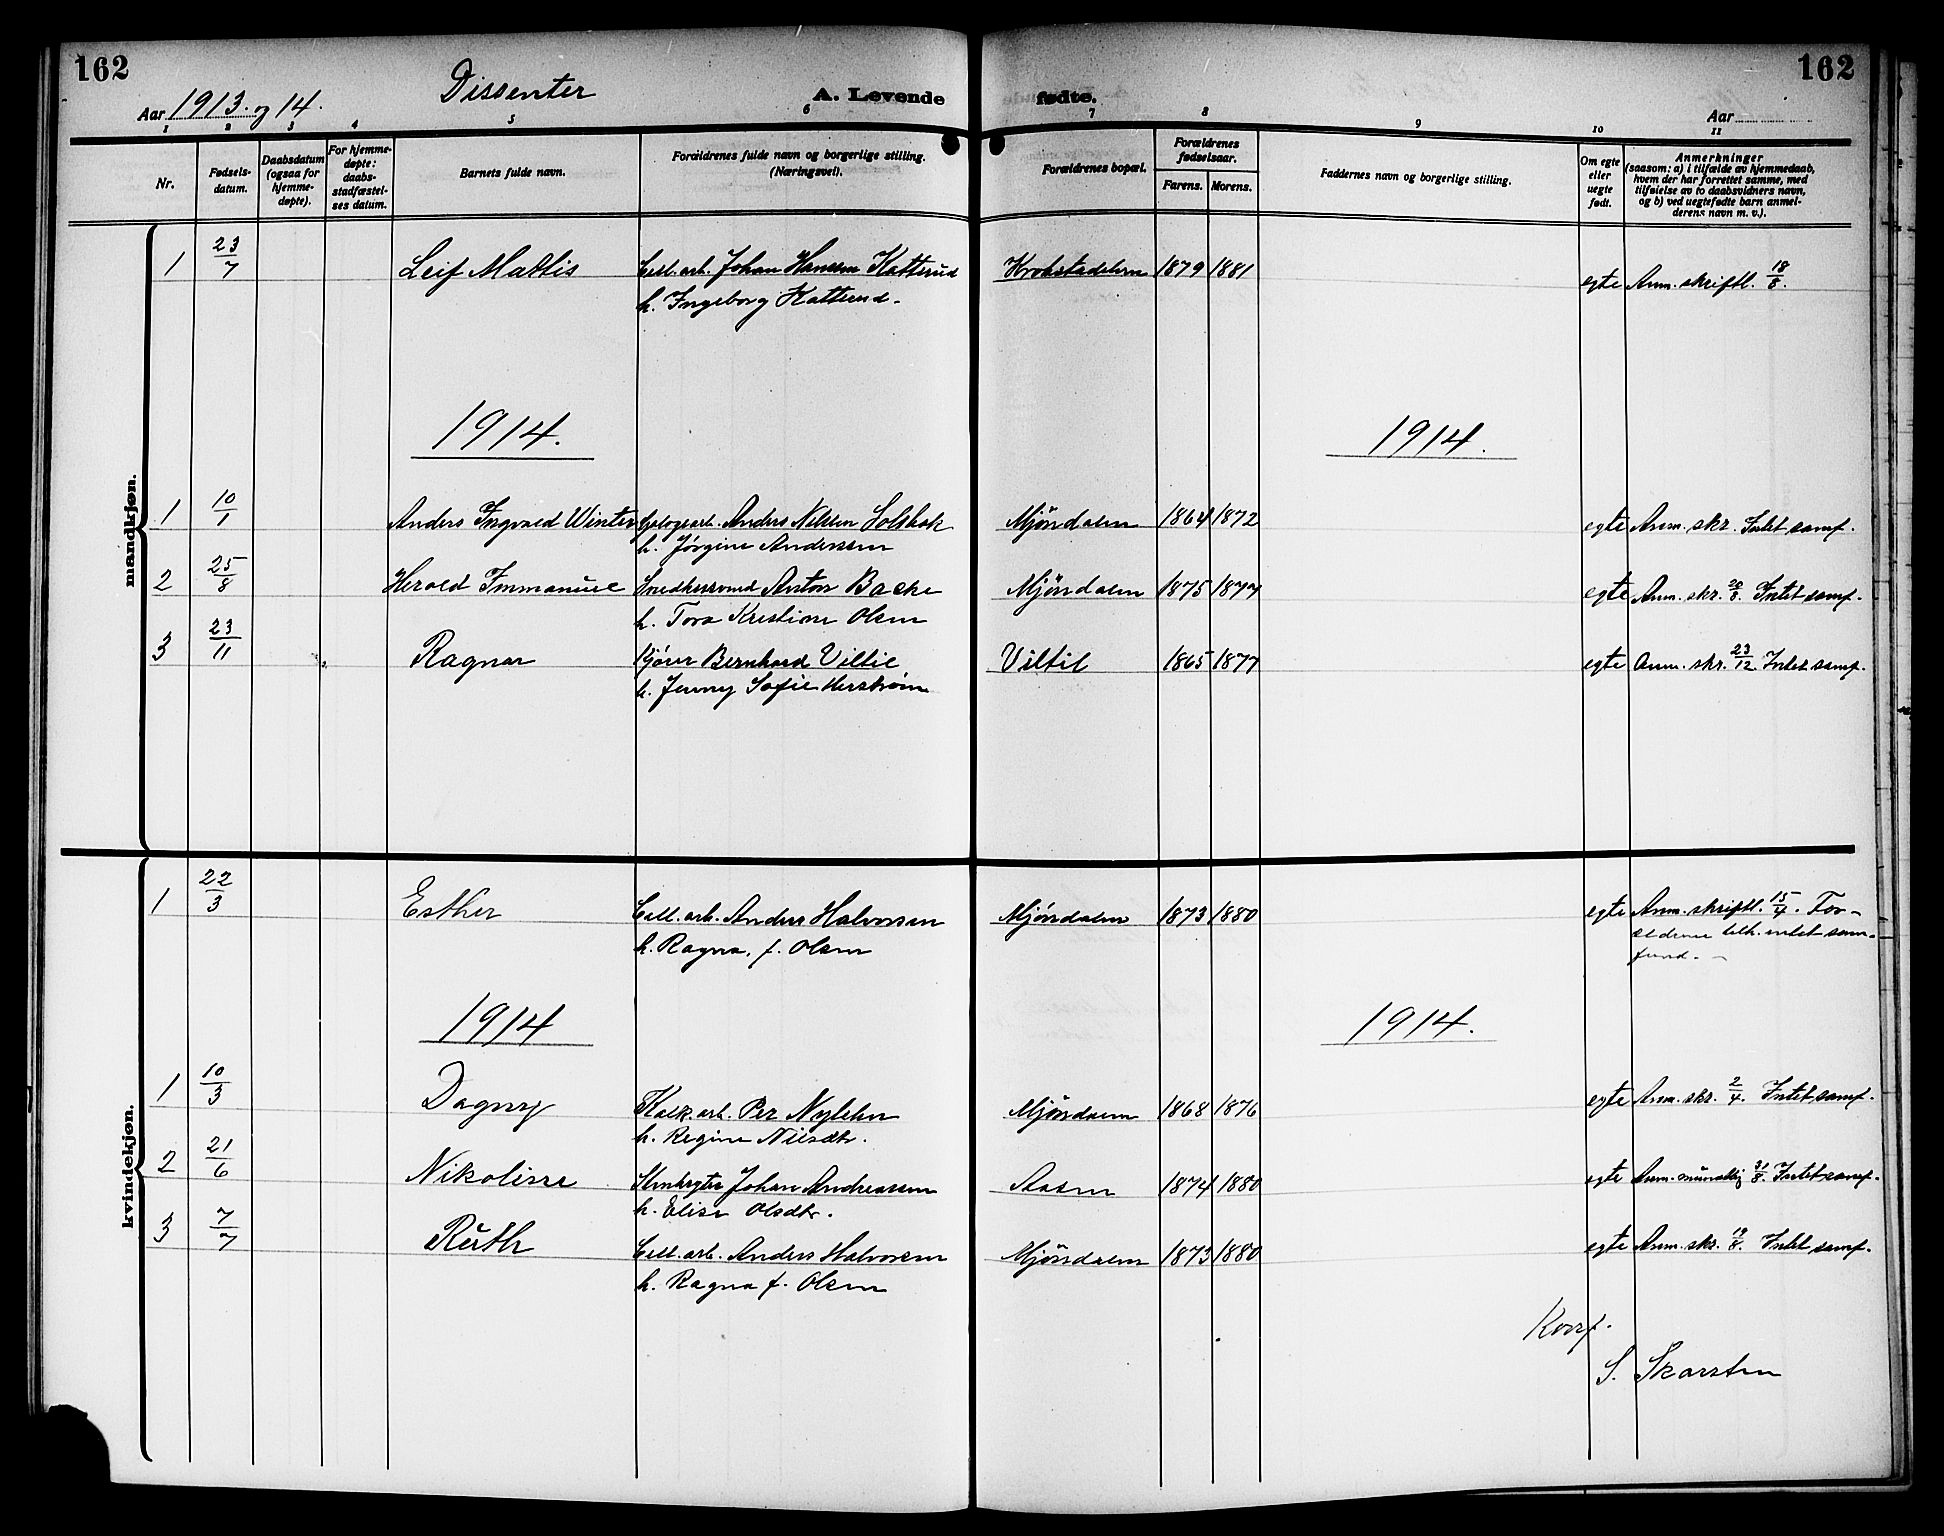 162
162
Aar 1913. og 14.
Dissenter
A. Levende
fødte.
Aar
1 2 3 4 5 6 7 8 9 10 11
Nr.
Fødsels-
datum.
Daabsdatum
(ogsaa for
hjemme-
døpte).
For hjemme-
døpte:
daabs-
stadfæstel-
ses datum.
Barnets fulde navn.
Forældrenes fulde navn og borgerlige stilling.
(Næringsvei).
Forældrenes bopæl.
Forældrenes
fødselsaar.
Farens. Morens.
Faddernes navn og borgerlige stilling.
Om egte
eller
uegte
født.
Anmerkninger
(saasom: a) i tilfælde av hjemmedaab,
hvem der har forrettet samme, med
tilføielse av to daabsvidners navn,
og b) ved uegtefødte barn anmel-
derens navn m. v.).
mandkjøn.
1 23/7 Leif Mattis Cell. arb. Johan Hansen Katterud Krokstadelven 1879 1881 egte Anm. skriftl. 18/8.
h. Ingeborg Katterud.
1914. 1914.
1 10/1 Anders Ingvald Winter Anders Nilsen Solbak Mjöndalen 1864 1872 egte Anm. skr. Intet samf.
h. Jørgine Andersen
2 25/8 Herold Immanuel Snedkersvend Anton Bache Mjöndalen 1875 1877 egte Anm. skr. Intet samf.
h. Tora Kristine Olsen
3 23/11 Ragnar Kjører Bernhard Viltil Viltil 1865 1877 egte Anm. skr. 23/12 Intet samf.
h. Jenny Sofie Herstrøm
kvindekjøn.
1 22/3 Esther Cell. arb. Anders Halvorsen Mjöndalen 1873 1880 egte Anm. skriftl. 15/4. For-
ældrene tilh. intet sam-
fund.
1914 1914.
1 10/3 Dagny Kalk. arb. Per Nylehn Mjöndalen 1868 1876 egte Anm. skr. 2/4. Intet samf.
h. Regine Nilsdtr.
2 21/6 Nikoline Johan Andreassen Aasen 1874 1880 egte Anm. mundtlig 31/8. Intet samf.
h. Elise Olsdtr.
3 7/7 Ruth Cell. arb. Anders Halvorsen Mjöndalen 1873 1880 egte Anm. skr. 19/8. Intet samf.
h. Ragna f. Olsen
h. Ragna, f. Olsen
Konf.
S. Skarsten